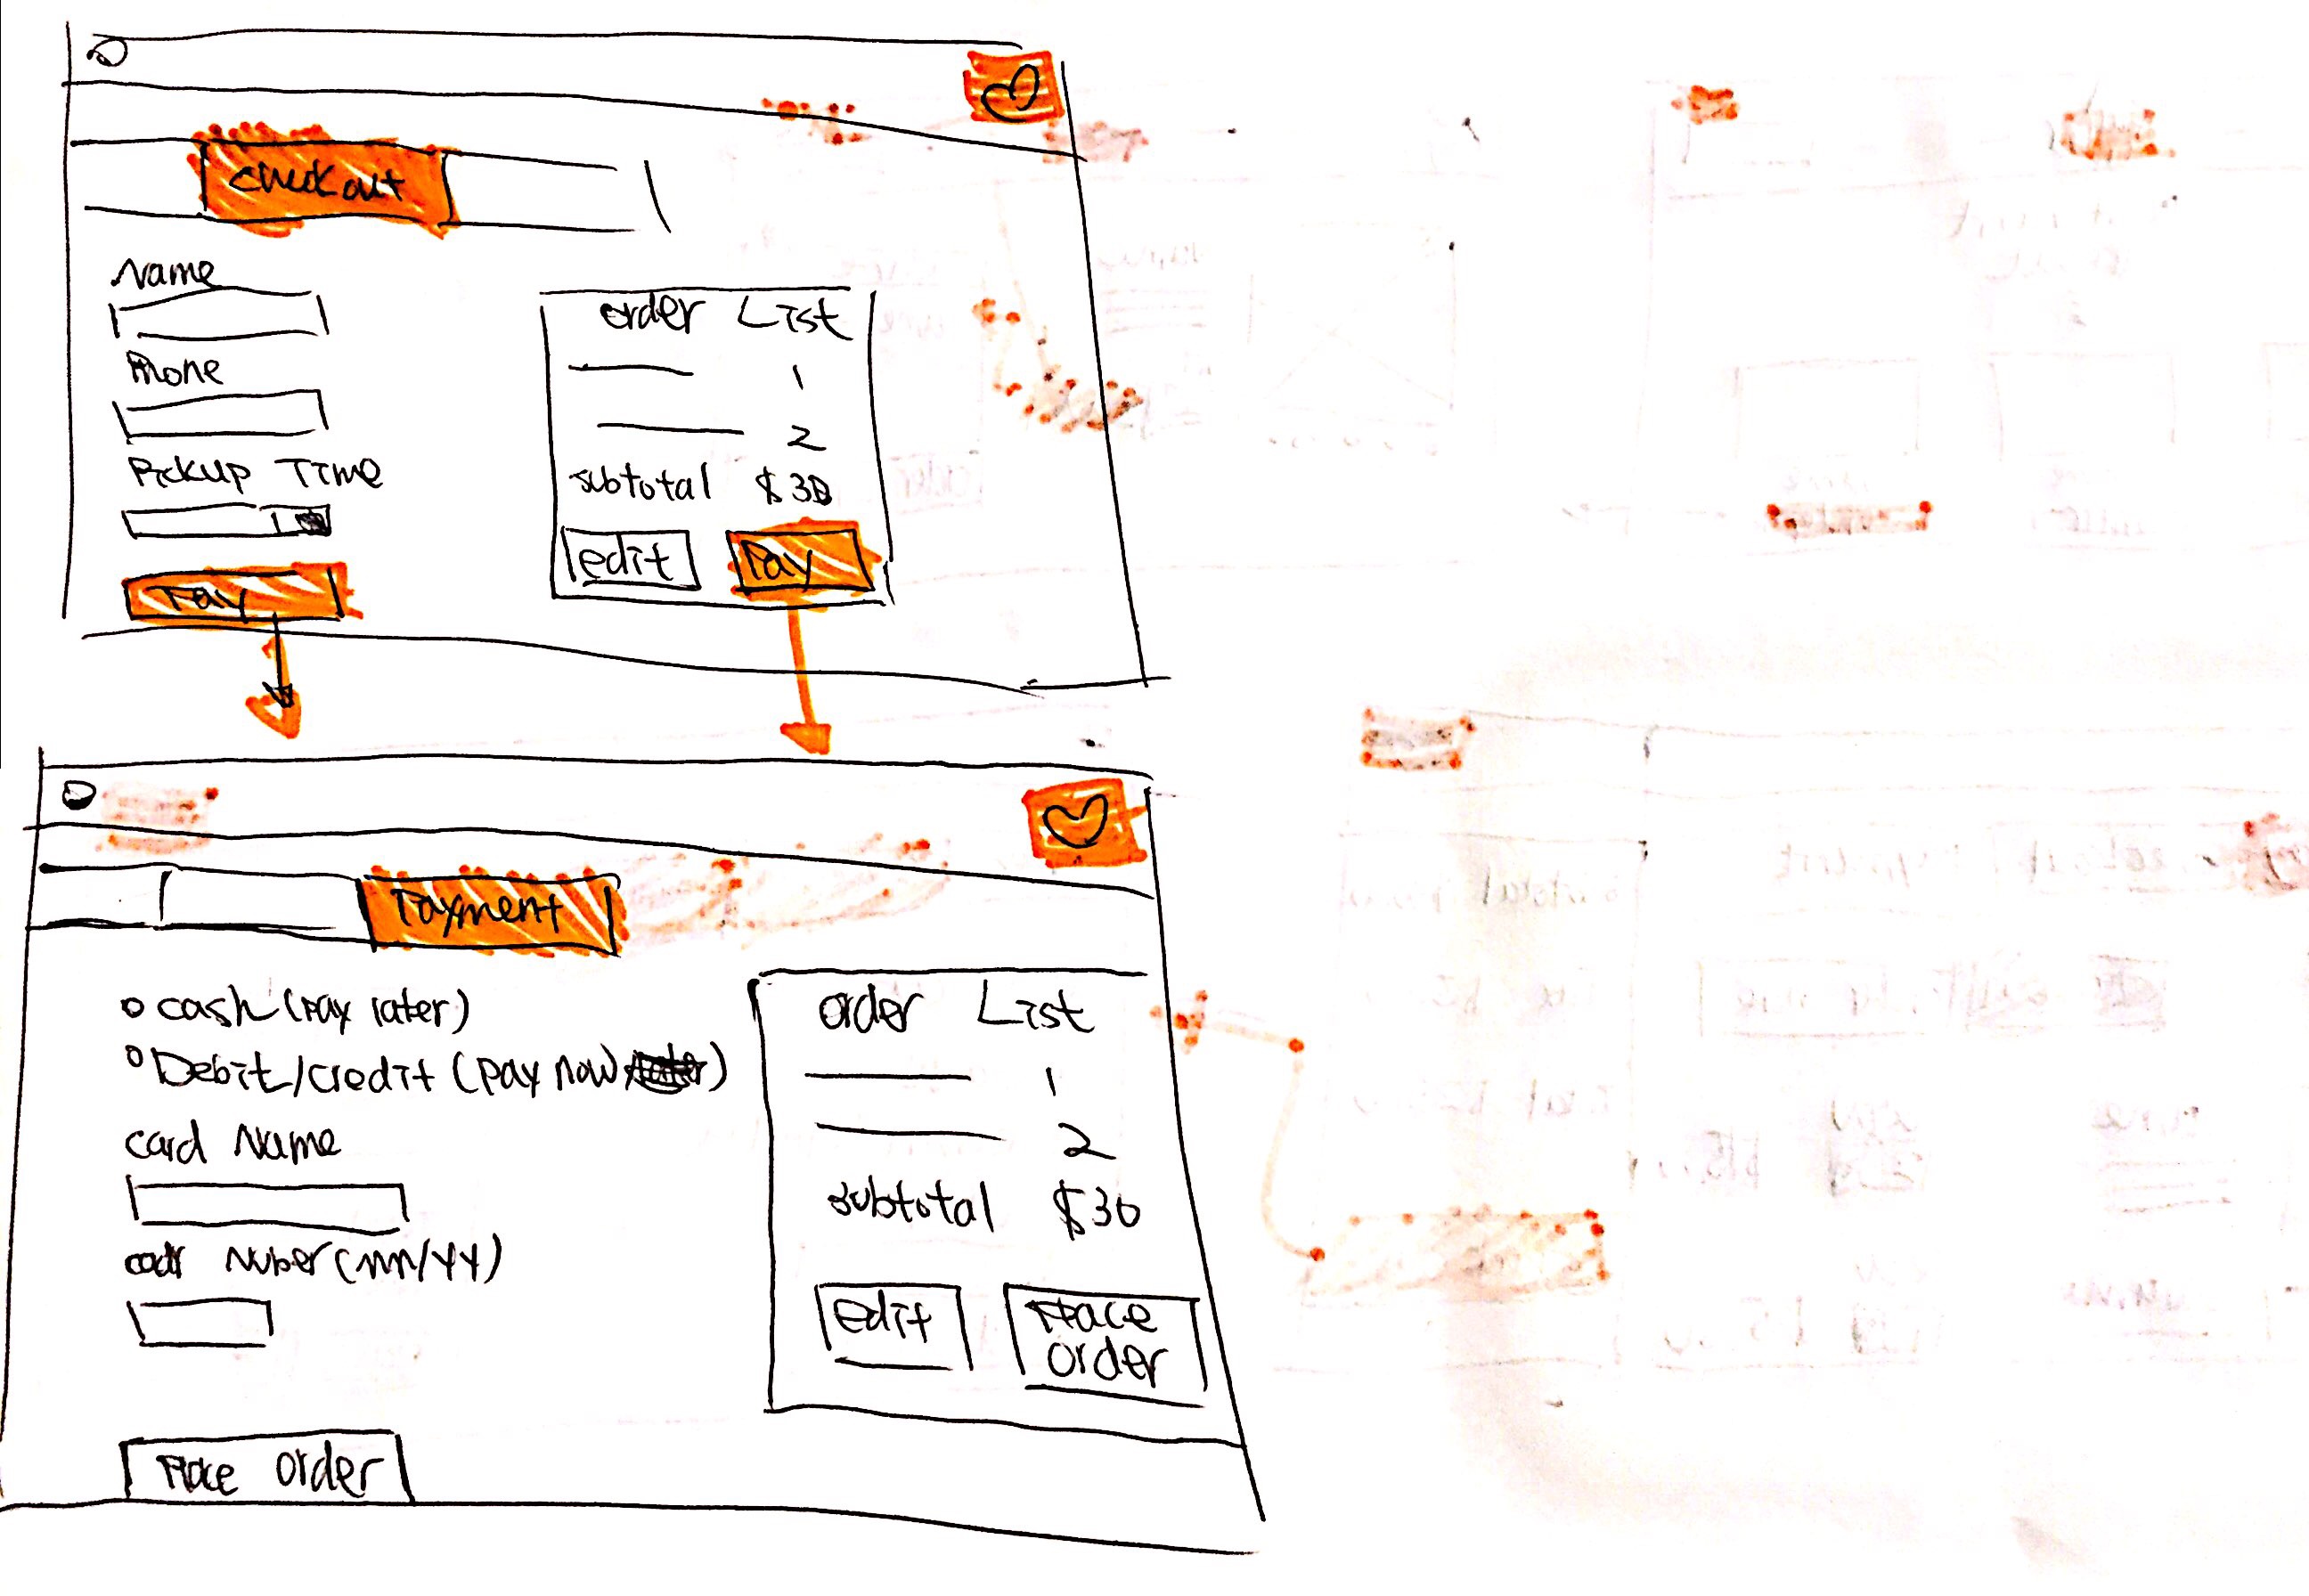 checkout
Name
Phone
Pickup Time
Pay
order List
1
2
subtotal $30
edit Pay
Payment
cash (Pay later)
Debit/credit (pay now)
card Name
Nuber (mm/yy)
Place order
order List
1
2
subtotal $30
edit Place
order